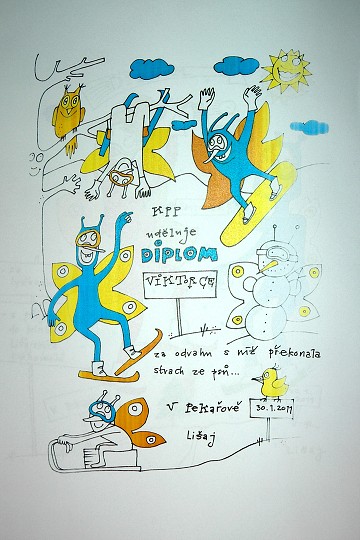 KPP
uděluje
DIPLOM
VIKTORCE
za odvahu s níž překonala
strach ze psů...
V Pekařově
30.1.2011
Lišaj